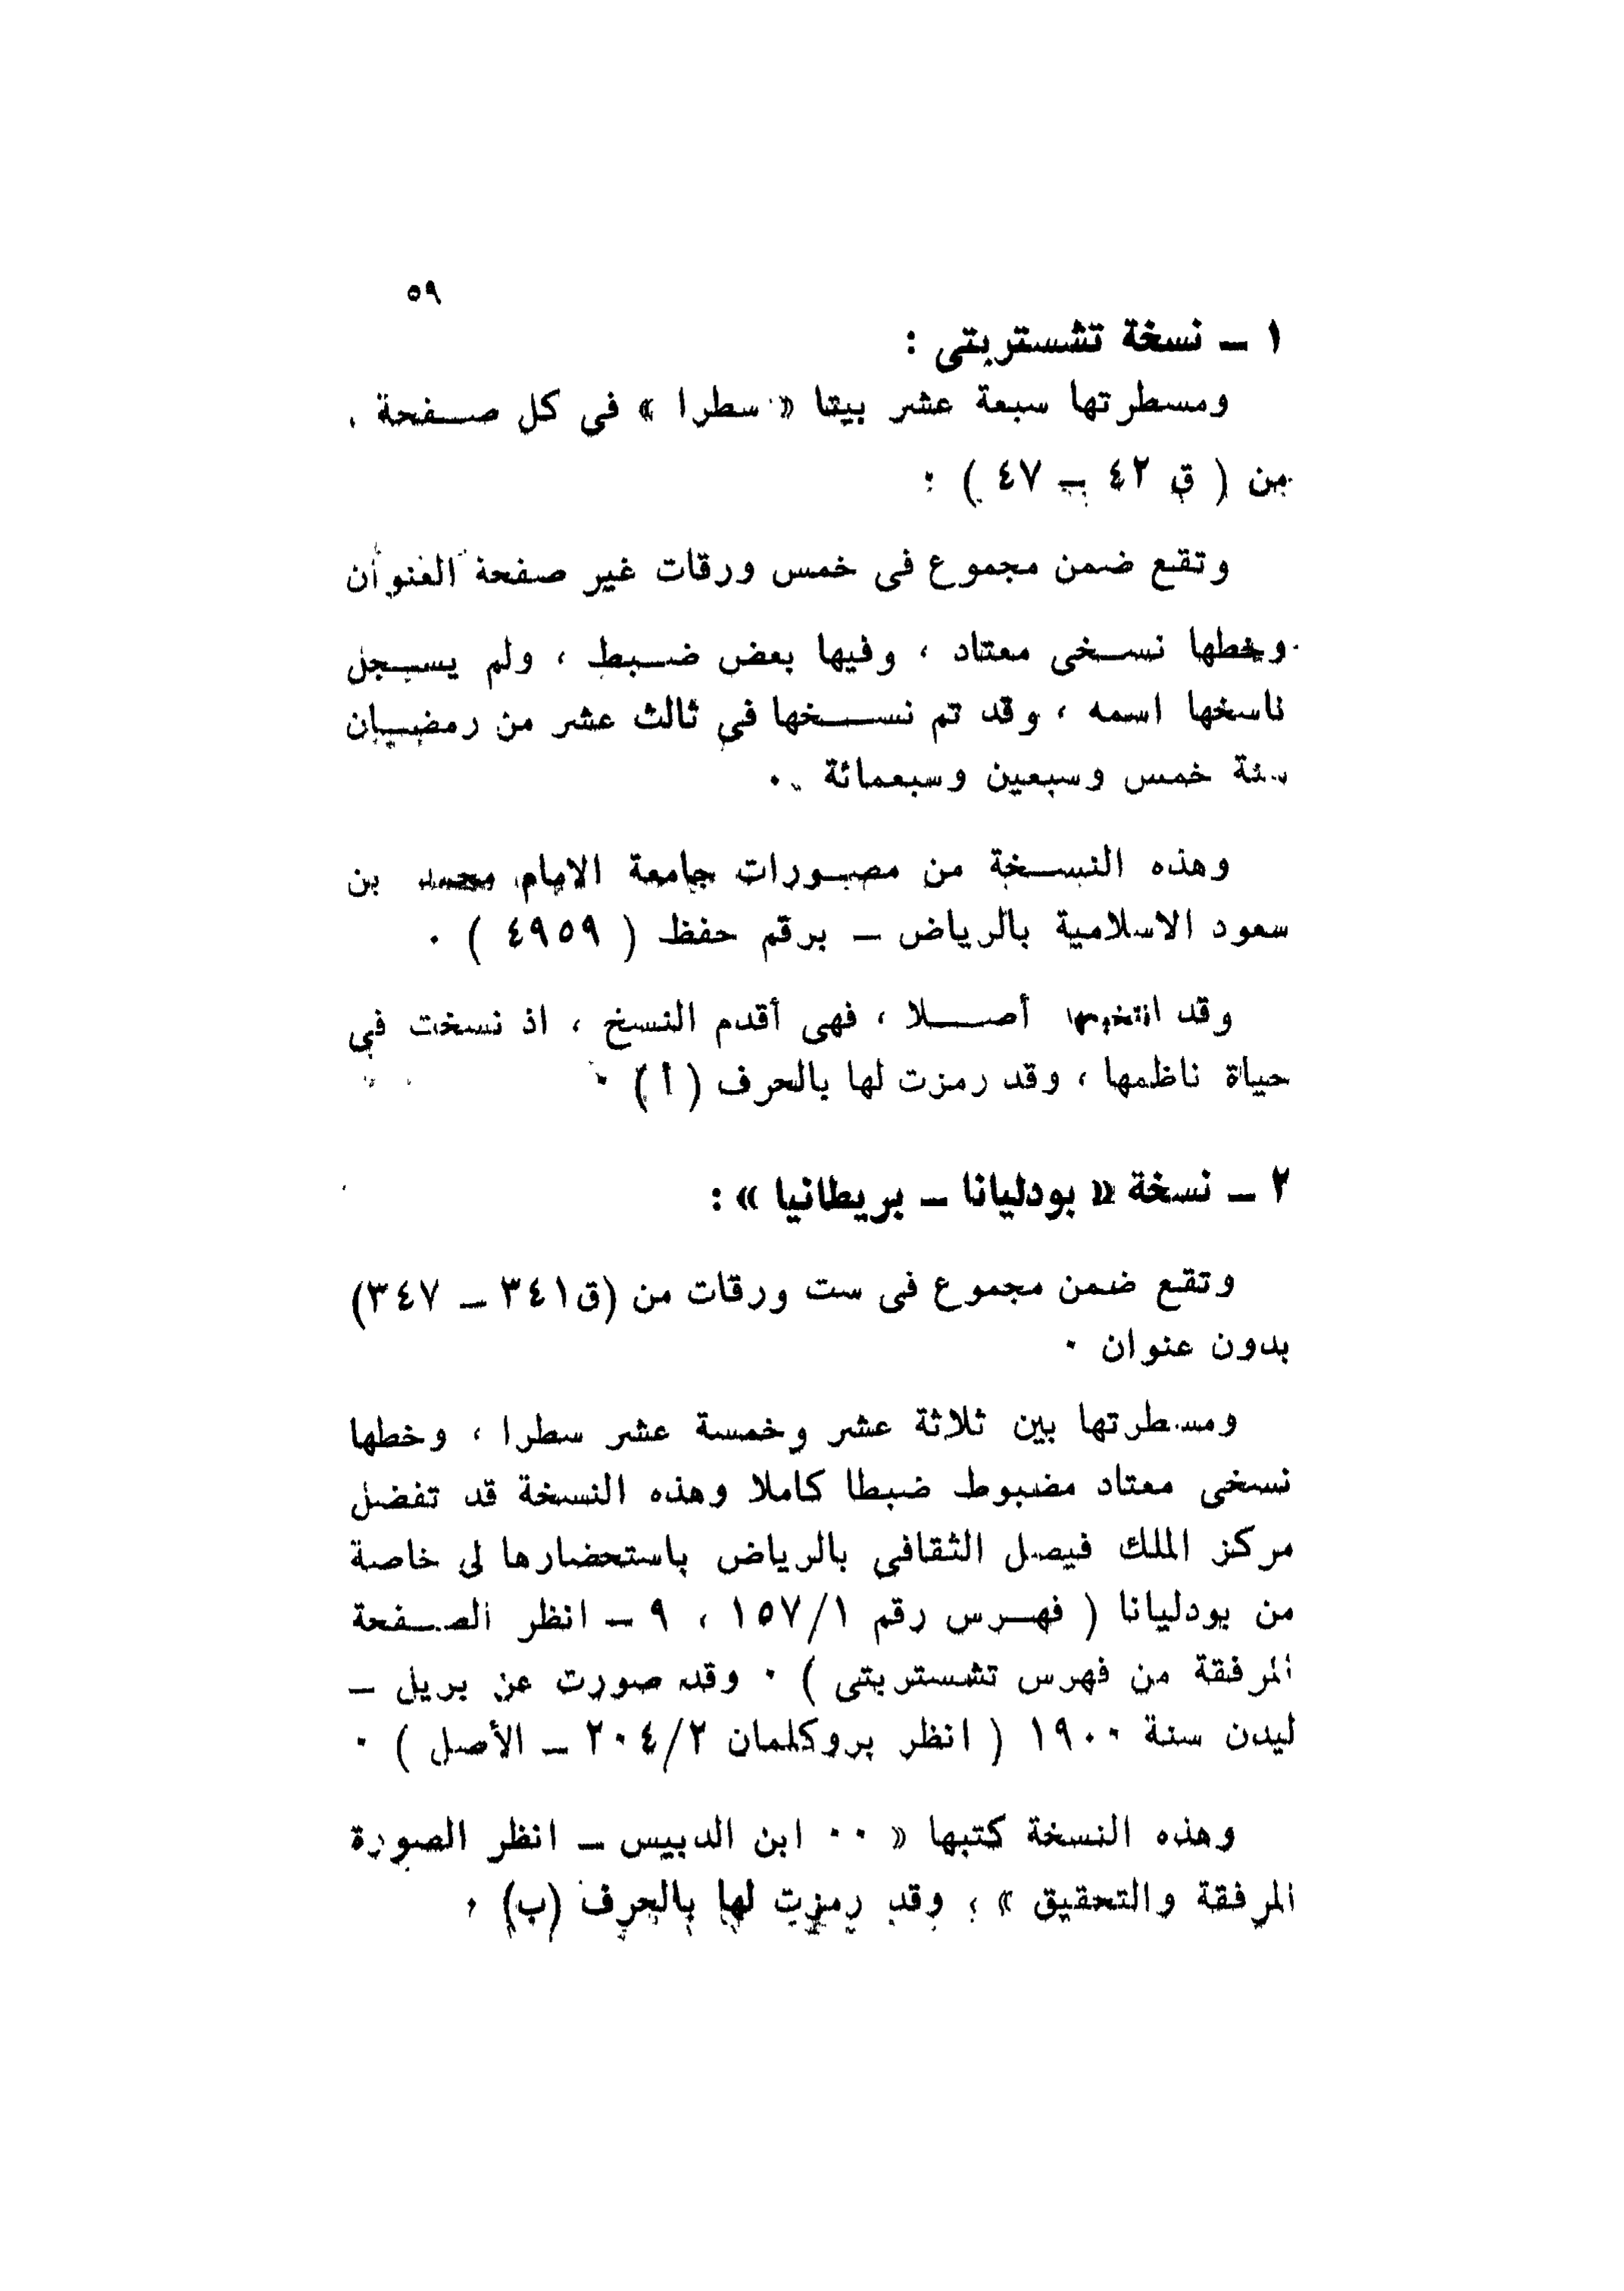 ٥٩
١ ـ نسخة تشستربتى :
ومسطرتها سبعة عشر بيتا « سطرا » فى كل صفحة .
من ( ق ٤٢ ـ ٤٧ ) .
وتقع ضمن مجموع فى خمس ورقات غير صفحة العنوان
وخطها نسخى معتاد ، وفيها بعض ضبط ، ولم يسجل
ناسخها اسمه ، وقد تم نسخها فى ثالث عشر من رمضان
سنة خمس وسبعين وسبعمائة .
وهذه النسخة من مصورات جامعة الامام محمد بن
سعود الاسلامية بالرياض ـ برقم حفظ ( ٤٩٥٩ ) .
وقد انتخبتها أصلا ، فهى أقدم النسخ ، اذ نسخت فى
حياة ناظمها ، وقد رمزت لها بالحرف ( أ ) .
٢ ـ نسخة « بودليانا ـ بريطانيا » :
وتقع ضمن مجموع فى ست ورقات من (ق٣٤١ ـ ٣٤٧)
بدون عنوان .
ومسطرتها بين ثلاثة عشر وخمسة عشر سطرا ، وخطها
نسخى معتاد مضبوط ضبطا كاملا وهذه النسخة قد تفضل
مركز الملك فيصل الثقافى بالرياض باستحضارها لى خاصة
من بودليانا ( فهرس رقم ١٥٧/١ ، ٩ ـ انظر الصفحة
المرفقة من فهرس تشستربتى ) . وقد صورت عن بريل ـ
ليدن سنة ١٩٠٠ ( انظر بروكلمان ٢٠٤/٢ ـ الأصل ) .
وهذه النسخة كتبها « .. ابن الدبيس ـ انظر الصورة
المرفقة والتحقيق » ، وقد رمزت لها بالحرف (ب) .